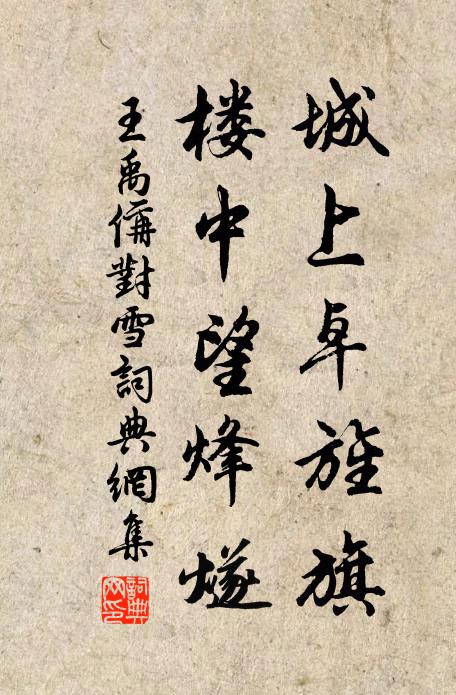 城上卓旌旗
楼中望烽燧
王禹偁對雪詞典網集
詞典网印